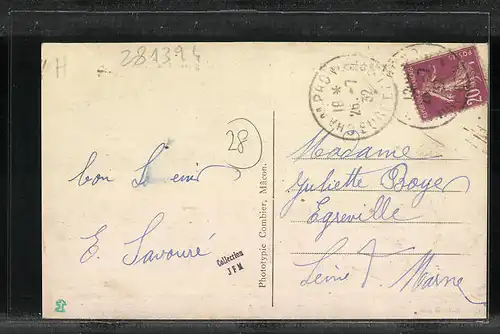 H
281394
28
bon Souvenir
E. Savouré
Collection
J F M
Phototypie Combier, Mâcon.
18 *
26 - 7
32
20c
Madame
Juliette Boyer
Egreville
Seine & Marne